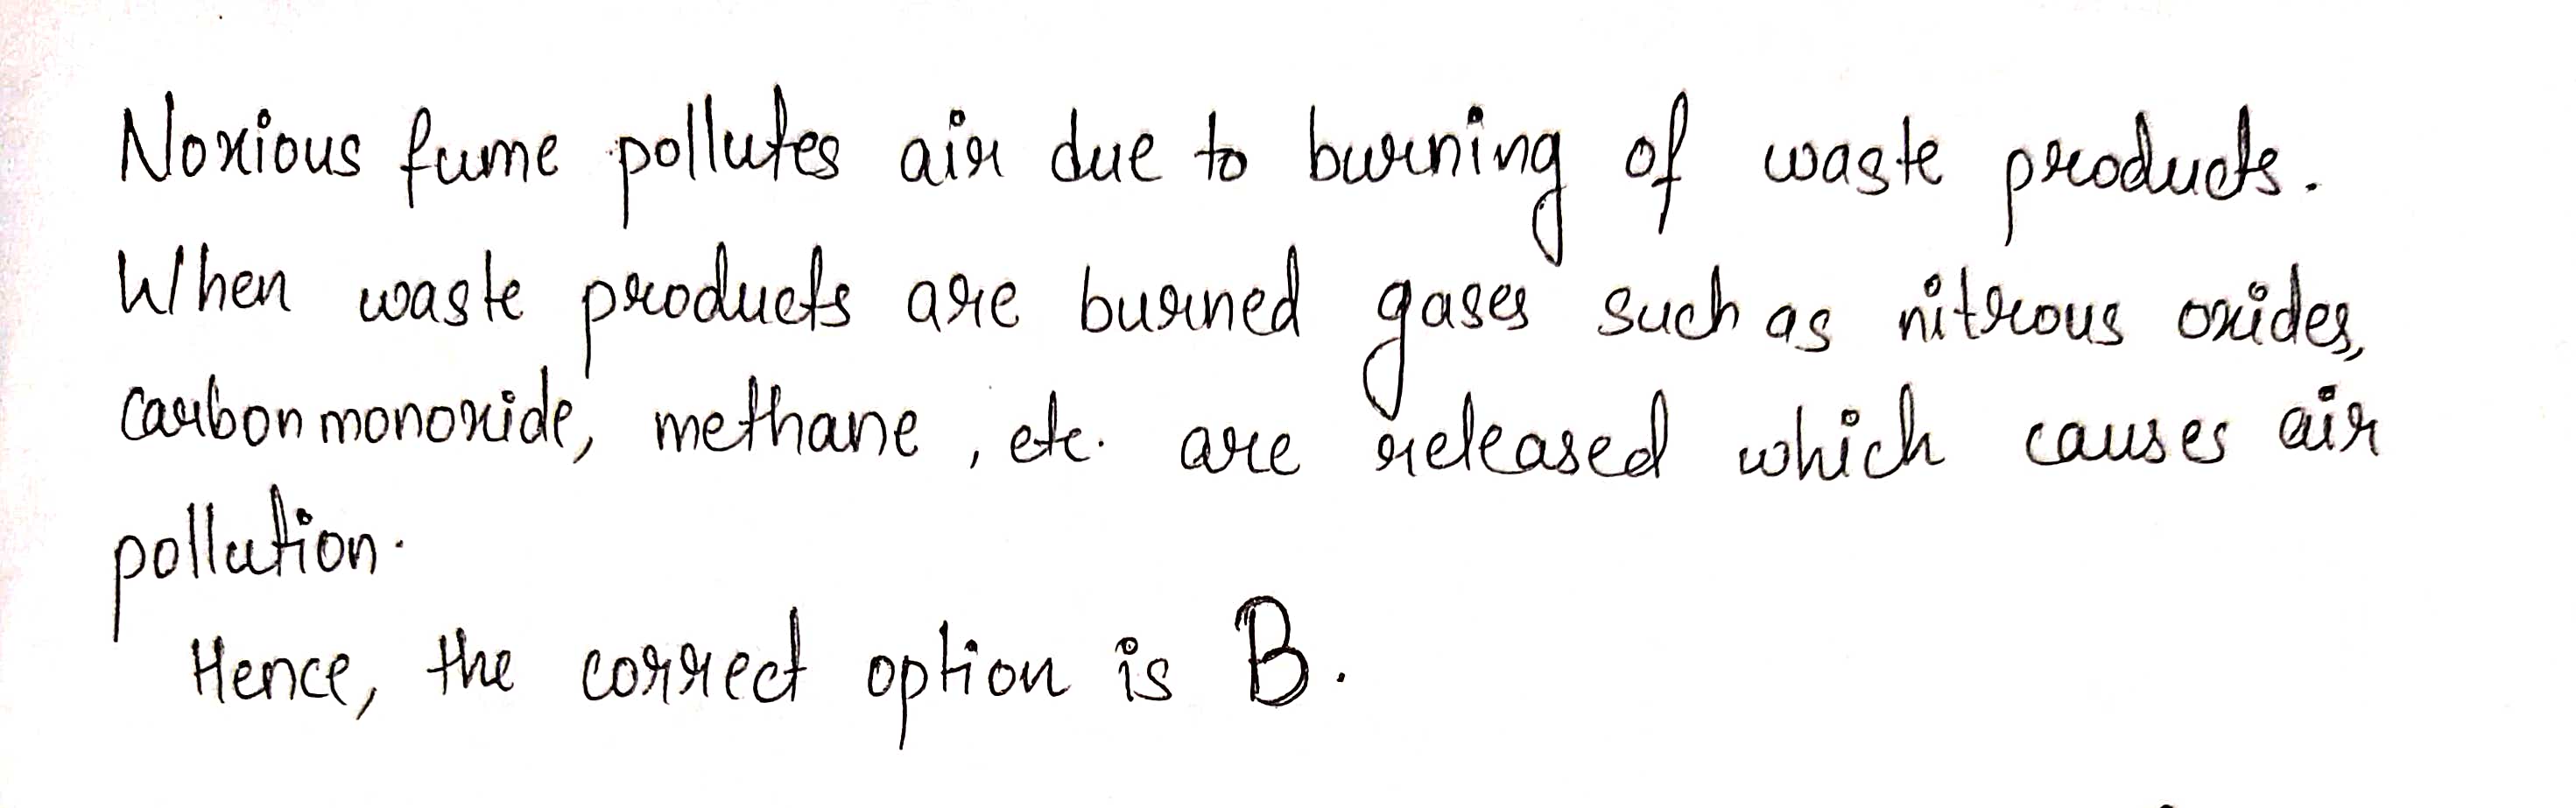 Noxious fume pollutes air due to burning of waste products.
When waste products are burned gases such as nitrous oxides,
carbon monoxide, methane, etc. are released which causes air
pollution.
Hence, the correct option is B.